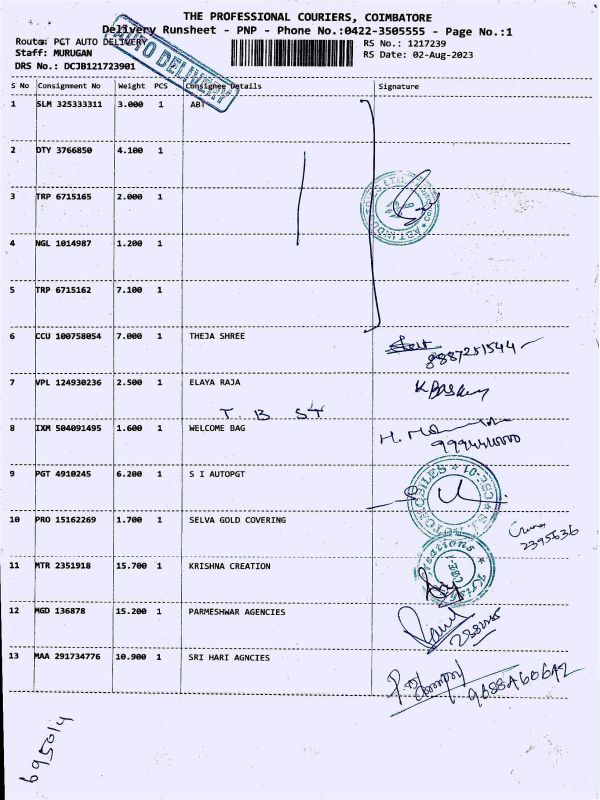 THE PROFESSIONAL COURIERS, COIMBATORE
Delivery Runsheet - PNP - Phone No.:0422-3505555 - Page No.:1
Route: PGT AUTO DELIVERY RS No.: 1217239
Staff: MURUGAN RS Date: 02-Aug-2023
DRS No.: DCJB121723901
AUTO DELIVERY
S No Consignment No Weight PCS Consignee Details Signature
1 SLM 325333311 3.000 1 ABT
2 DTY 3766850 4.100 1
3 TRP 6715165 2.000 1
4 NGL 1014987 1.200 1
5 TRP 6715162 7.100 1
6 CCU 100758054 7.000 1 THEJA SHREE
8887251544
7 VPL 124930236 2.500 1 ELAYA RAJA
T. B ST
8 IXM 504091495 1.600 1 WELCOME BAG
9 PGT 4910245 6.200 1 S I AUTOPGT
10 PRO 15162269 1.700 1 SELVA GOLD COVERING
2395636
11 MTR 2351918 15.700 1 KRISHNA CREATION
12 MGD 136878 15.200 1 PARMESHWAR AGENCIES
13 MAA 291734776 10.900 1 SRI HARI AGNCIES
695014